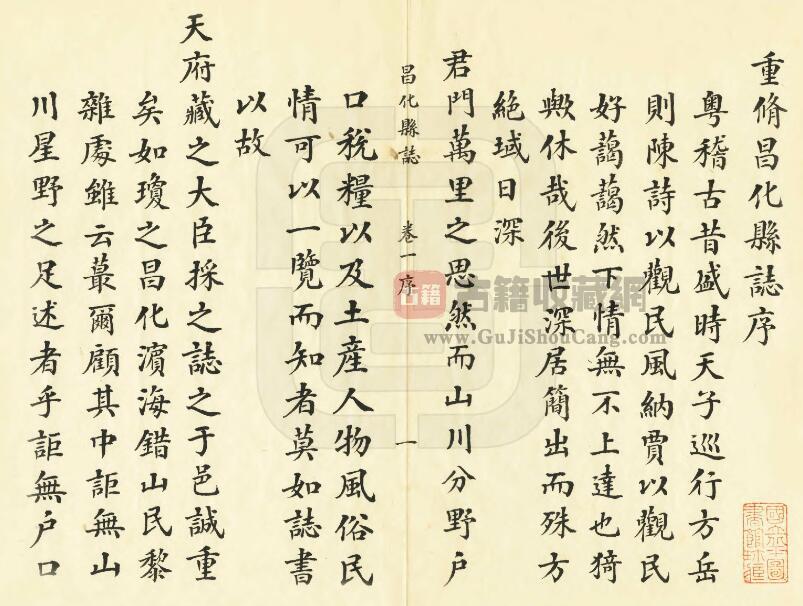 重脩昌化縣誌序
粵稽古昔盛時天子巡行方岳
則陳詩以觀民風納賈以觀民
好藹藹然下情無不上達也猗
歟休哉後世深居簡出而殊方
絶域日深
君門萬里之思然而山川分野戶
昌化縣誌 卷一序 一
口稅糧以及土産人物風俗民
情可以一覽而知者莫如誌書
以故
天府藏之大臣採之誌之于邑誠重
矣如瓊之昌化濱海錯山民黎
雜處雖云蕞爾顧其中詎無山
川星野之足述者乎詎無戶口
古籍
古籍收藏網
www.GuJiShouCang.com